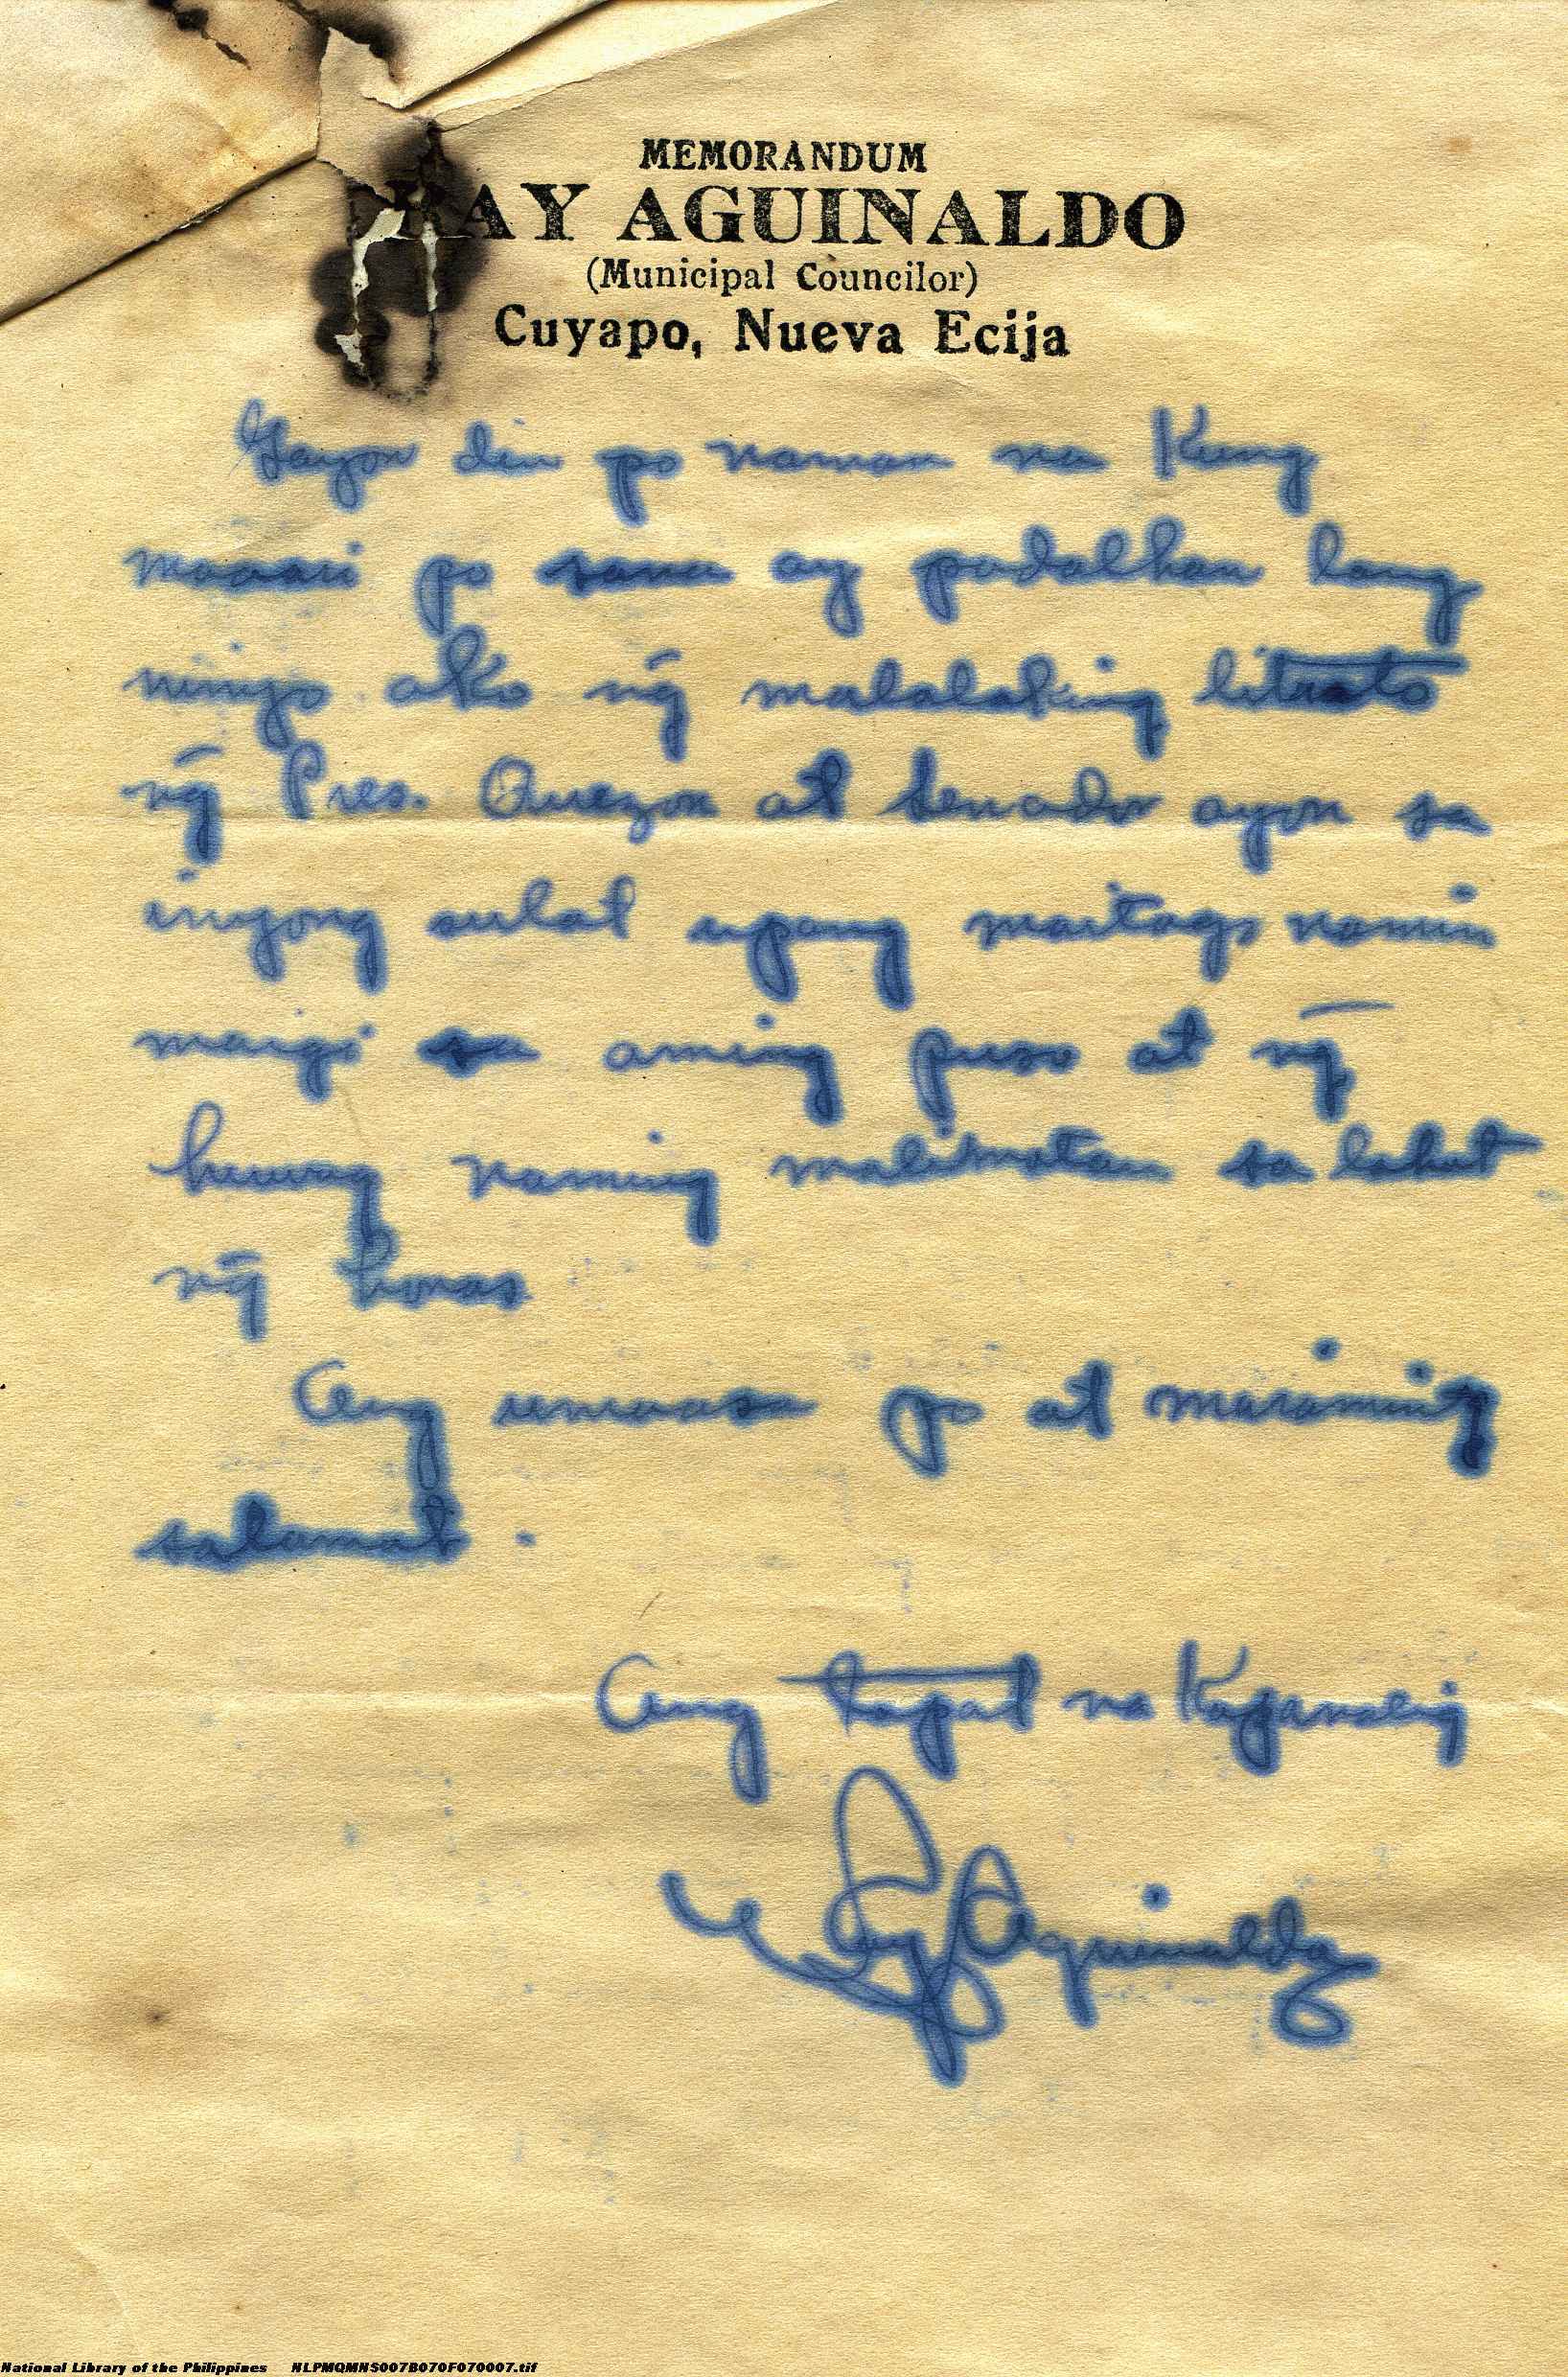 MEMORANDUM
RAY AGUINALDO
(Municipal Councilor)
Cuyapo, Nueva Ecija
Gayon din po naman na Kung
maaari po sana ay padalhan lang
ninyo ako ng̃ malalaking litrato
ng̃ Pres. Quezon at Senador ayon sa
inyong sulat upang maitago namin
maigi sa aming puso at ng̃
huwag naming malimutan sa lahat
ng̃ horas
Ang umaasa po at maraming
salamat.
Ang tapat na Kapanalig
Ray Aguinaldo
National Library of the Philippines NLPMQMNS007B070F070007.tif